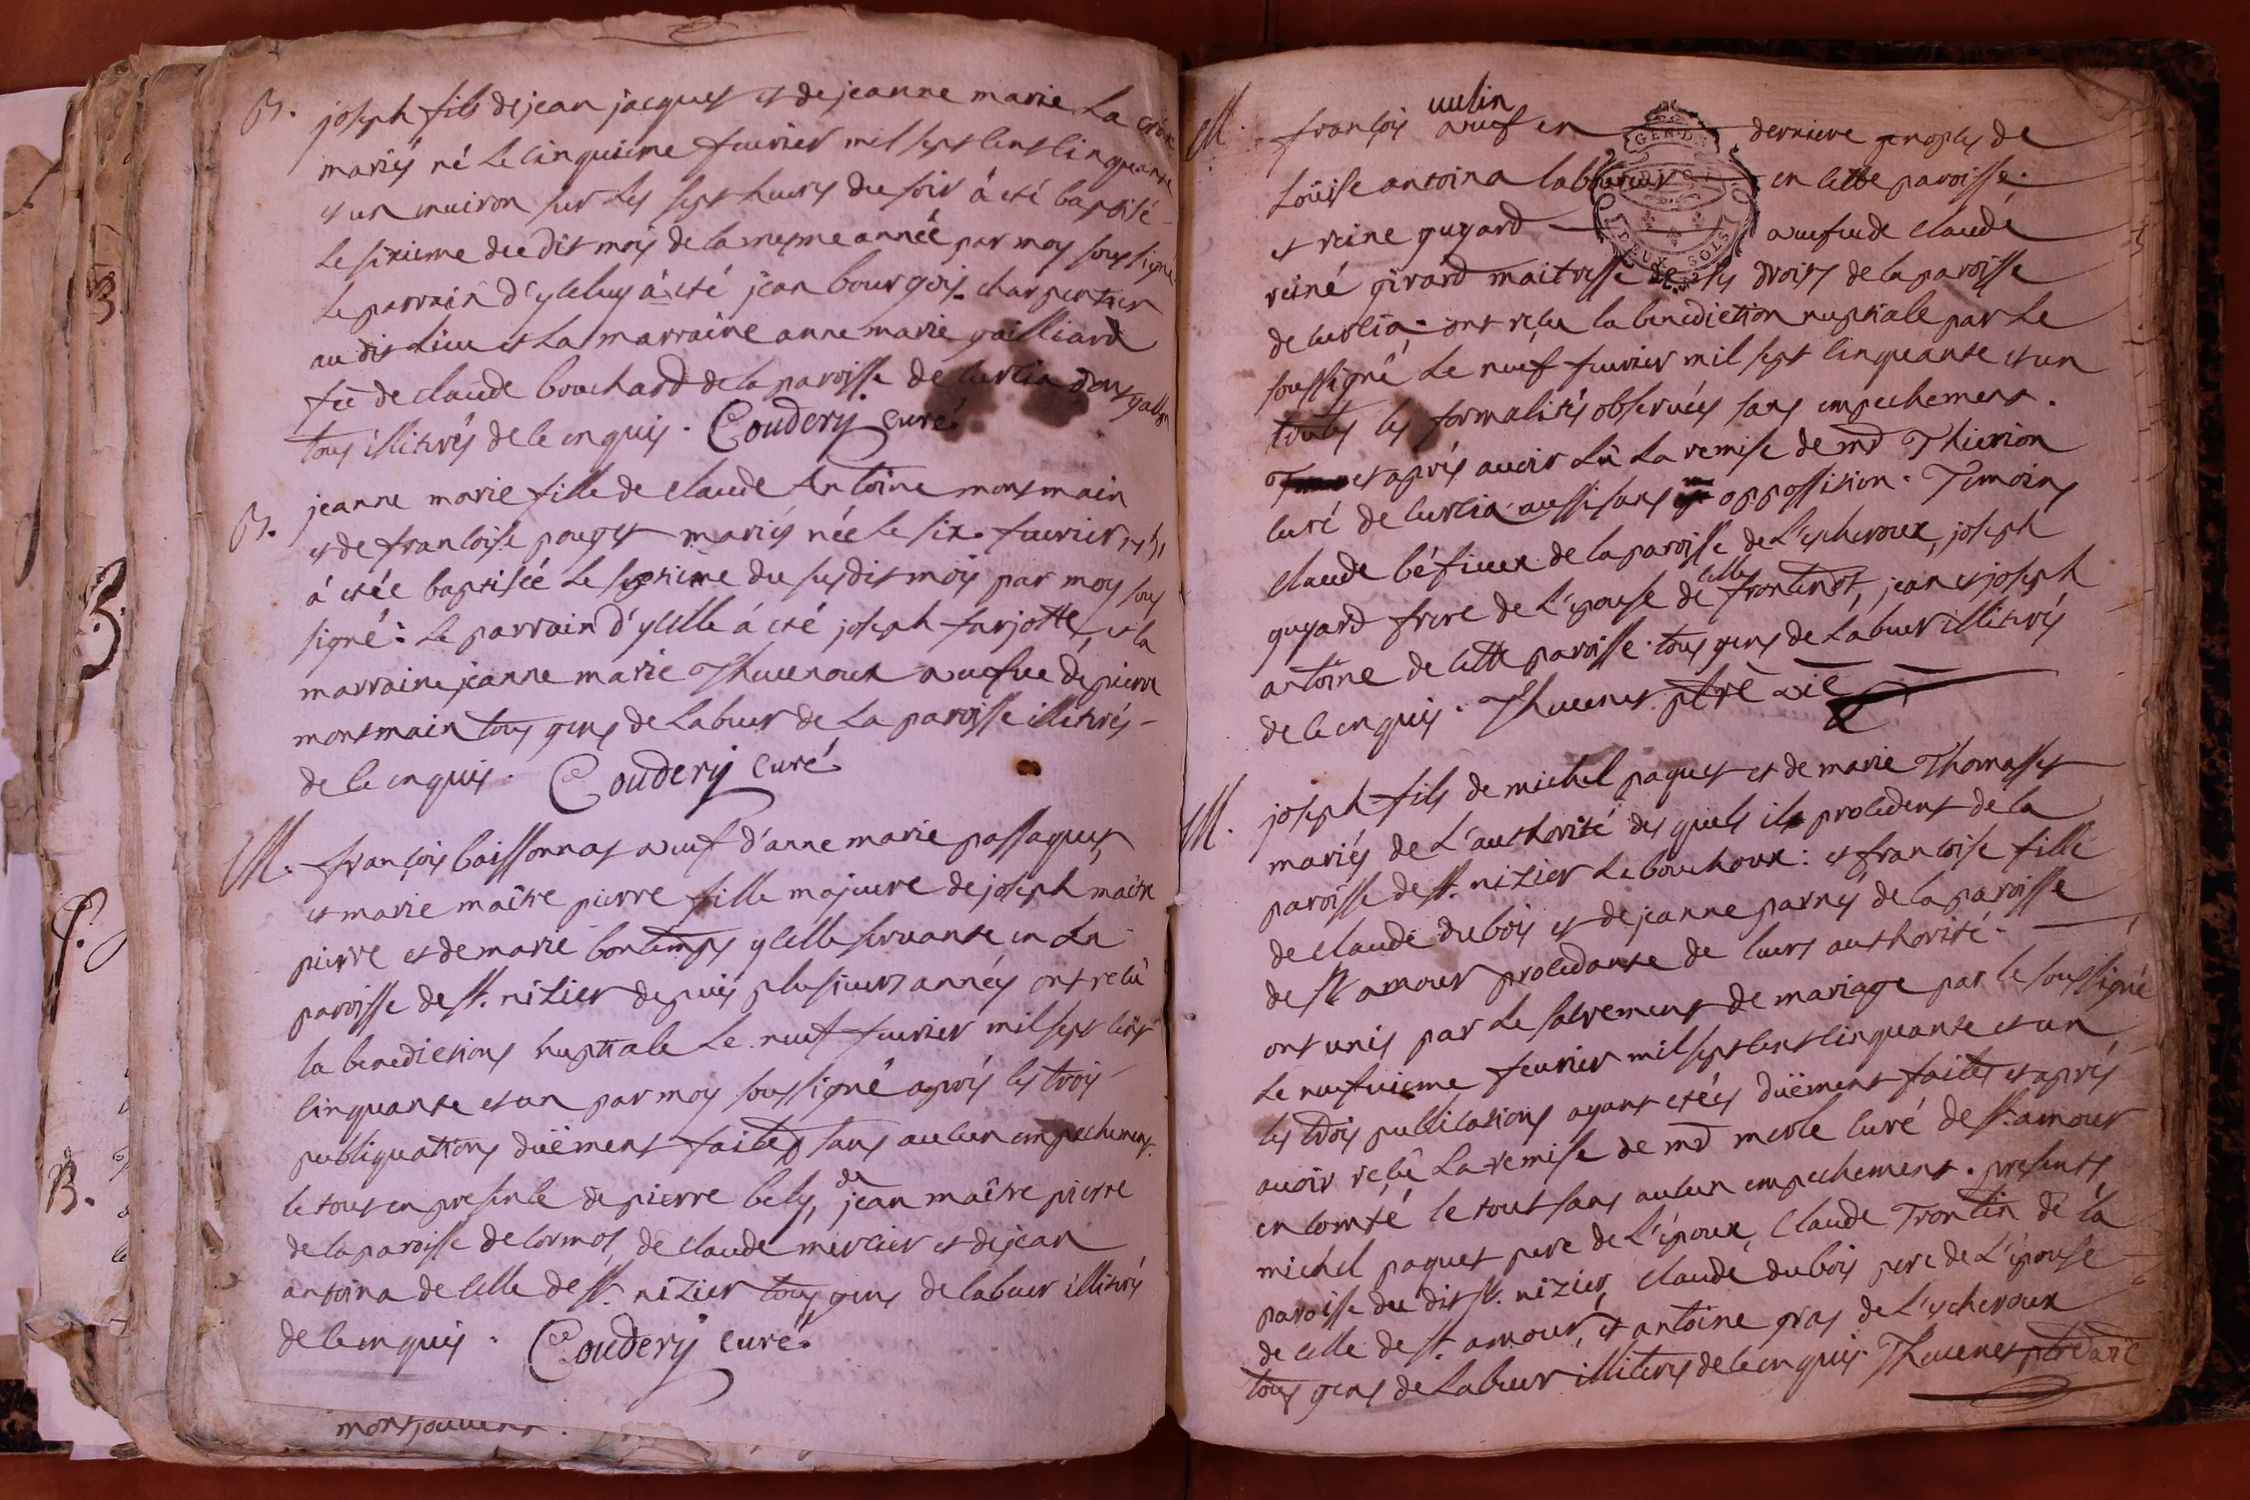 B.
joseph fils de jean jacquet et de jeanne marie La croix
mariés né Le cinquieme feuvrier mil sept cent cinquante
et un enuiron sur Les sept heures du soir á eté baptisé
Le sixieme du dit mois de la mesme année par moy sous signé
Le parrain d'yceluy á eté jean bourgois charpentier
au dit Lieu et La marraine anne marie gailliard
fe de claude bouchard de la paroisse de curcia
tous illitirés de ce enquis. Coudery curé
B.
jeanne marie fille de claude Antoine montmain
et de francoise pouget mariés née Le six feuvrier 1751
á etée baptisée Le septieme du susdit mois par moy sous
signé: Le parrain d'ycelle á eté joseph farjotte, et la
marraine jeanne marie Theuenoux ueufue de pierre
montmain tous gens de Labeur de La paroisse illitirés
de ce enquis. Coudery curé
M.
françois boissonnat ueuf d'anne marie passaquet
et marie maître pierre fille majeure de joseph maitre
pierre et de marie bontemps ycelle seruante en La
paroisse de st. nizier depuis plusieurs années ont recû
la benedictions nuptiale Le neuf feuvrier mil sept cent
cinquante et un par moy soussigné aprés les trois
publiquations duëment faites sans aucun empechement.
le tout en presence de pierre bely, de jean maître pierre
de la paroisse de cormos, de claude mercier et de jean
antoina de celle de st. nizier tous gens de labeur illitirés
de ce enquis. Coudery curé
montjouuent.
M.
françois uulin ueuf en derniere noples de
Loüise antoina laboureur en cette paroisse.
et reine guyard ueufue de claude
reiné girard maitresse de ses droits de la paroisse
de curcia, ont reçu la benediction nuptiale par Le
soussigné Le neuf feuvrier mil sept cinquante et un
toutes les formalités observées sans empechement.
et aprés auoir Lû La remise de mr Thierion
curé de curcia aussi sans oppossision. Temoins
claude béficux de la paroisse de L'escheroux, joseph
guyard frere de L'epouse de celle frontenot, jean et joseph
antoine de cette paroisse. tous gens de Labeur illitirés
de ce enquis. Theuenet ptre vic
M.
joseph fils de michel paquet et de marie Thomasset
mariés de L'authorité des quels ils procedent de la
paroisse de st. nizier Le bouchoux: et francoise fille
de claude dubois et de jeanne parnés de la paroisse
de st amour procedante de leurs authorité.
ont unis par Le sacrement de mariage par le soussigné
Le neufuieme feurier mil sept cent cinquante et un
les trois publications ayant etées duëment faites et aprés
auoir reçû La remise de mr merle curé de st. amour
en comté le tout sans aucun empechement. presents
michel paquet pere de L'époux, Claude Troncin de la
paroisse du dit st. nizier, Claude dubois pere de L'épouse
de celle de st. amour, et antoine gras de L'escheroux
tous gens de Labeur illitirés de ce enquis. Theuenet ptre vic